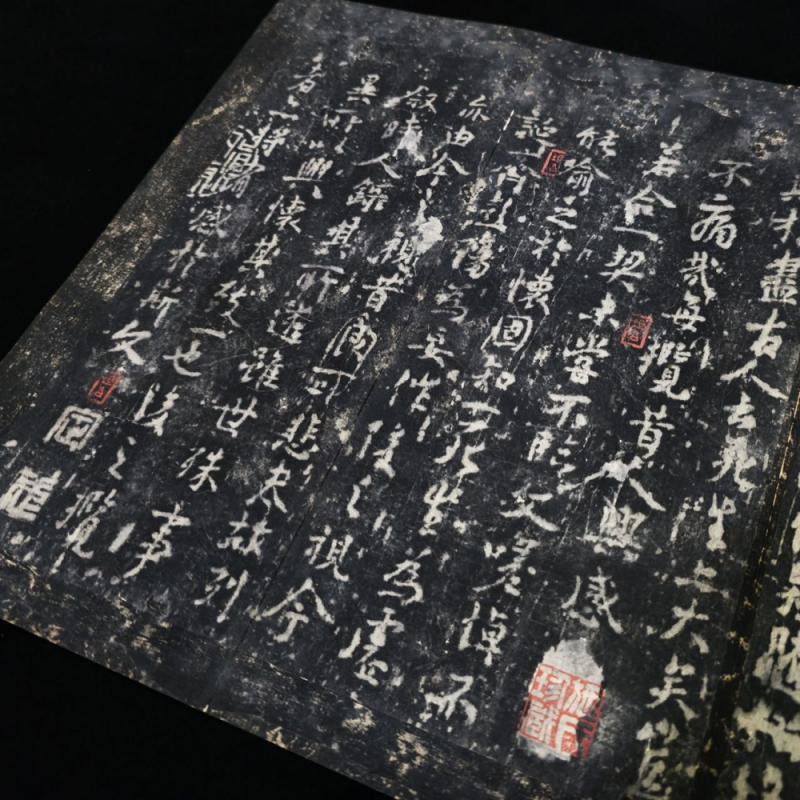 期於盡古人云死生亦大矣豈
不痛哉每攬昔人興感
若合一契未嘗不臨文嗟悼不
能喻之於懷固知一死生為虛
誕齊彭殤為妄作後之視今
亦由今之視昔良可悲夫故列
敘時人錄其所述雖世殊事
異所以興懷其致一也後之攬
者亦將有感於斯文
施氏珍藏